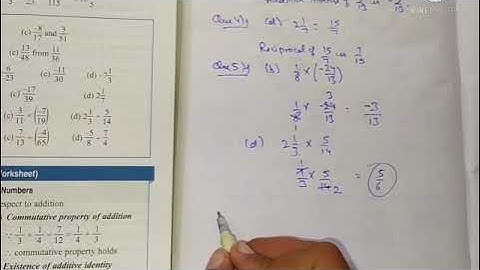 (c) -8/17 and 3/51
(c) 13/48 from 11/36
(c) -11/30 (d) -7 1/3
(c) -17/39 (d) 2 1/7
(c) 3/11 ÷ (-7/19) (d) 2 1/3 × 5/14
(c) 7/13 ÷ (-4/65) (d) -5/8 ÷ 7/4
Worksheet)
Numbers
expect to addition
Commutative property of addition
∵ 1/3 + 1/4 = 7/12 = 1/4 + 1/3
∴ commutative property holds
Existence of additive identity
Que 4) (d) 2 1/7 = 15/7
Reciprocal of 15/7 is 7/15
Que 5) (b) 1/8 × (-24/13)
1/8 × -24/13 = -3/13
3
1
(d) 2 1/3 × 5/14
7/3 × 5/14 = 5/6
1
2